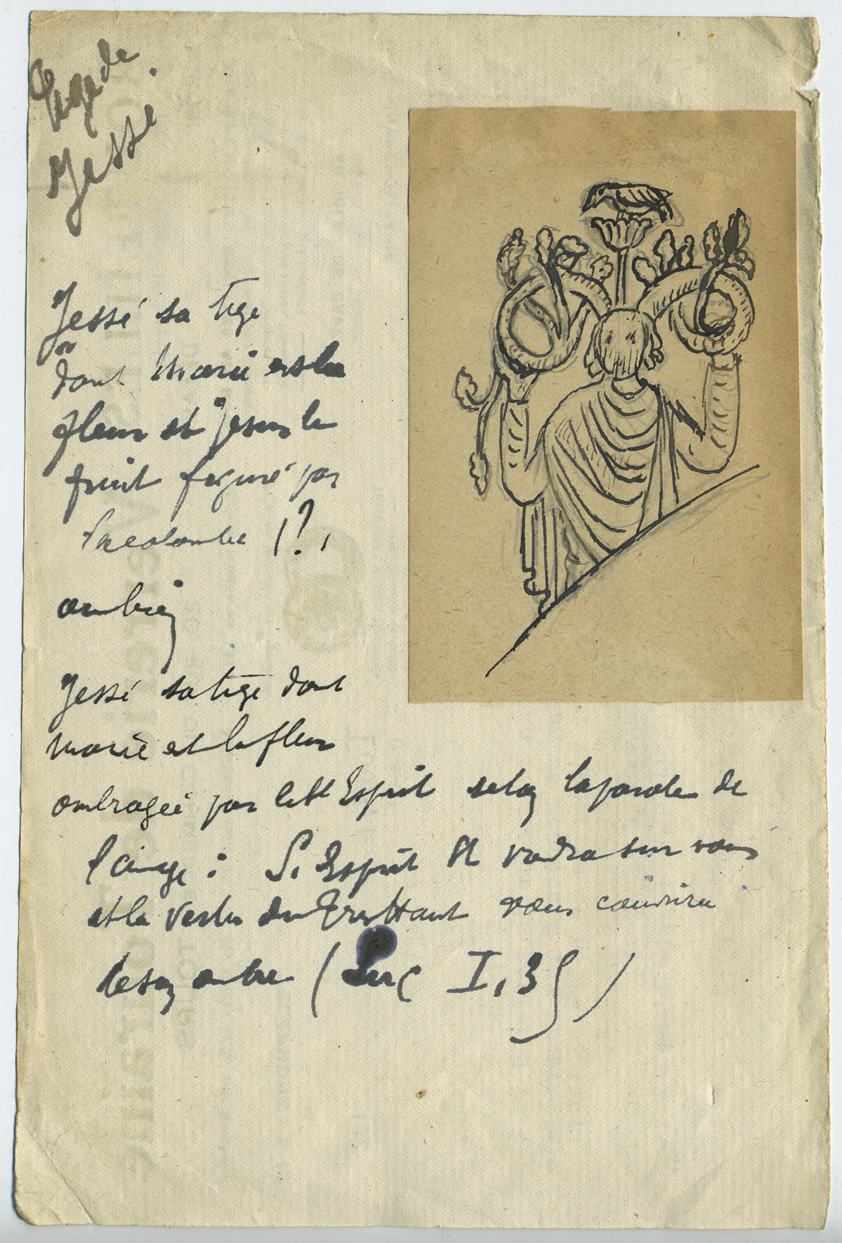 Tige de
Jessé.
Jessé sa tige
dont Marie est la
fleur et jesus le
fruit figuré par
la colombe (?)
ou bien
Jessé sa tige dont
Marie et la fleur
ombragée par le St Esprit selon la parole de
l'ange : St Esprit vous
et la vertu du Tres Haut vous couvrira
de son ombre (Luc I, 35)